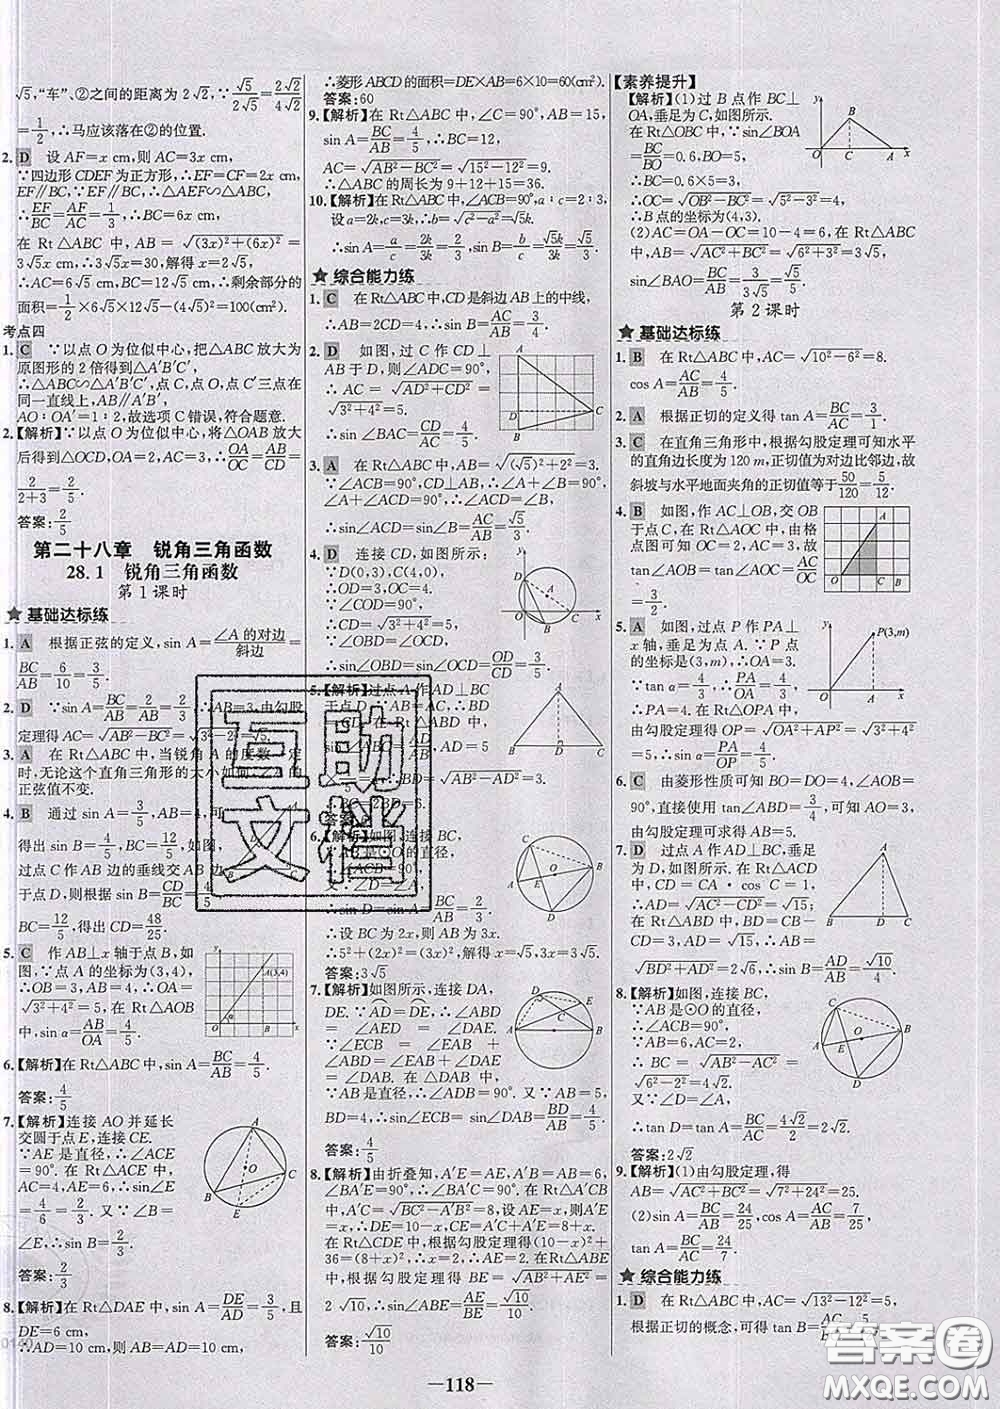 √5,“车”、②之间的距离为 2√2,∵√5/2√5=2√2/4√2
=1/2,∴马应该落在②的位置.
2. D 设 AF=x cm,则 AC=3x cm,
∵四边形 CDEF 为正方形,∴EF=CF=2x cm,
EF∥BC,∵EF∥BC,∴△AEF∽△ABC,
∴EF/BC=AF/AC=1/3,∴BC=6x cm,
在 Rt△ABC 中,AB=√((3x)²+(6x)²)=
3√5x cm,∴3√5x=30,解得 x=2√5,
∴AC=6√5 cm,BC=12√5 cm,∴剩余部分的
面积=1/2×6√5×12√5-(4√5)²=100(cm²).
考点四
1. C ∵以点 O 为位似中心,把△ABC 放大为
原图形的 2 倍得到△A′B′C′,
∴△ABC∽△A′B′C′,点 C、点 O、点 C′三点在
同一直线上,AB∥A′B′,
AO:OA′=1:2,故选项 C 错误,符合题意.
2.【解析】∵以点 O 为位似中心,将△OAB 放大
后得到△OCD,OA=2,AC=3,∴OA/OC=AB/CD=
2/(2+3)=2/5.
答案:2/5
第二十八章 锐角三角函数
28.1 锐角三角函数
第 1 课时
★基础达标练
1. A 根据正弦的定义,sin A=∠A 的对边/斜边=
BC/AB=6/10=3/5.
2. D ∵sin A=BC/AB=2/3,∴2/AB=2/3,∴AB=3,由勾股
定理得 AC=√(AB²-BC²)=√(3²-2²)=√5.
3. A 在 Rt△ABC 中,当锐角 A 的度数一定
时,无论这个直角三角形的大小如何,∠A 的
正弦值不变.
4. B 通过 sin A=3/5,AB=4,可
得出 sin B=4/5,BC=12/5,如图,
过点 C 作 AB 边的垂线交 AB 边
于点 D,则根据 sin B=CD/BC=
CD/(12/5)=4/5,得出 CD=48/25.
5. C 作 AB⊥x 轴于点 B,如
图,∵点 A 的坐标为(3,4),
∴OB=3,AB=4,∴OA=
√(3²+4²)=5.在 Rt△AOB
中,sin α=AB/OA=4/5.
6.【解析】在 Rt△ABC 中,sin A=BC/AB=4/5.
答案:4/5
7.【解析】连接 AO 并延长
交圆于点 E,连接 CE.
∵AE 是直径,∴∠ACE
=90°.在 Rt△ACE 中,
AC=4,AE=6,∴sin E=
4/6=2/3.又∵∠B=
∠E,∴sin B=2/3.
答案:2/3
8.【解析】在 Rt△DAE 中,sin A=DE/AD=3/5,且
DE=6 cm,
∴AD=10 cm,∴AB=AD=10 cm,
∴菱形 ABCD 的面积=DE×AB=6×10=60(cm²).
答案:60
9.【解析】在 Rt△ABC 中,∠C=90°,AB=15,
sin A=BC/AB=4/5,∴BC=12,
AC=√(AB²-BC²)=√(15²-12²)=9.
∴△ABC 的周长为 9+12+15=36.
10.【解析】在 Rt△ABC 中,∠ACB=90°,a:c=2:3,
设 a=2k,c=3k,∴b=√(c²-a²)=√5k.
∴sin A=a/c=2k/3k=2/3,sin B=b/c=√5k/3k=√5/3.
★综合能力练
1. C 在 Rt△ABC 中,CD 是斜边 AB 上的中线,
∴AB=2CD=4,∴sin B=AC/AB=3/4.
2. D 如图,过 C 作 CD⊥
AB 于 D,则∠ADC=90°,
∴AC=√(AD²+CD²)=
√(3²+4²)=5.
∴sin∠BAC=CD/AC=4/5.
3. A 在 Rt△ABC 中,∵AB=√((√5)²+2²)=3.
∵∠ACB=90°,CD⊥AB,∴∠A+∠B=90°,
∠A+∠ACD=90°,∴∠ACD=∠B,
∴sin∠ACD=sin∠B=AC/AB=√5/3.
4. D 连接 CD,如图所示:
∵D(0,3),C(4,0),
∴OD=3,OC=4.
∵∠COD=90°,
∴CD=√(3²+4²)=5.
∵∠OBD=∠OCD,
∴sin∠OBD=sin∠OCD=OD/CD=3/5.
5.【解析】过点 A 作 AD⊥BC
于点 D
√(AB²-AD²)=√(5²-4²)
6.【解析】如图,连接 BC,
∵AB 是⊙O 的直径,
∴∠ACB=90°.
∴sin D=sin A=BC/AB=2/3.
∴设 BC 为 2x,则 AB=3x.
∴5²+(2x)²=(3x)²,解得 x=√5,3x=3√5
答案:3√5
7.【解析】如图所示,连接 DA,
DE.∵AD=DE,∴∠ABD
=∠AED=∠DAE.
∵∠ECB=∠EAB+
∠ABD=∠EAB+∠DAE
=∠DAB.在△DAB 中,
∵AB 是直径,∴∠ADB=90°.又∵AB=5,
BD=4,∴sin∠ECB=sin∠DAB=BD/AB=4/5
答案:4/5
8.【解析】由折叠知,A′E=AE,A′B=AB=6,
∠BA′E=90°,∴∠BA′C=90°.在 Rt△A′CB
中,A′C=√(BC²-A′B²)=8,设 AE=x,则 A′E
=x,∴DE=10-x,CE=A′C+A′E=8+x.
在 Rt△CDE 中,根据勾股定理得(10-x)²+
36=(8+x)²,∴x=2,∴AE=2.在 Rt△ABE
中,根据勾股定理得 BE=√(AB²+AE²)=
2√10,∴sin∠ABE=AE/BE=√10/10.
答案:√10/10
【素养提升】
【解析】(1)过 B 点作 BC⊥
OA,垂足为 C,如图所示.
在 Rt△OBC 中,∵sin∠BOA
=BC/BO=0.6,BO=5,
∴BC=0.6×5=3,
∴OC=√(BO²-BC²)=√(5²-3²)=4,
∴B 点的坐标为(4,3).
(2)AC=OA-OC=10-4=6,在 Rt△ABC
中,AB=√(AC²+BC²)=√(6²+3²)=3√5,
sin∠BAO=BC/AB=3/3√5=√5/5.
第 2 课时
★基础达标练
1. B 在 Rt△ABC 中,AC=√(10²-6²)=8.
cos A=AC/AB=4/5.
2. A 根据正切的定义得 tan A=BC/AC=3/1.
3. C 在直角三角形中,根据勾股定理可知水平
的直角边长度为 120 m,正切值为对边比邻边,故
故斜坡与水平地面夹角的正切值等于50/120=5/12.
4. B 如图,作 AC⊥OB,交 OB
于点 C,在 Rt△AOC 中,由网
格点图可知 OC=2,AC=3,
故 tan∠AOB=tan∠AOC=
3/2.
5. A 如图,过点 P 作 PA⊥
x 轴,垂足为点 A.∵P 点
的坐标是(3,m),∴OA=3.
∵tan α=4/3,∴PA/OA=4/3,
∴PA=4.在 Rt△OPA 中,
由勾股定理得 OP=√(OA²+PA²)=√(3²+4²)
=5,∴sin α=PA/OP=4/5.
6. C 由菱形性质可知 BO=DO=4,∠AOB=
90°,直接使用正切定义 tan∠ABD=3/4可知 AO=3,
由勾股定理可求得 AB=5.
7. D 过点 A 作 AD⊥BC,垂足
为 D.如图所示,在 Rt△ACD
中,CD=CA·cos C=1,∴AD
=√(AC²-CD²)=√15,
在 Rt△ABD 中,BD=CB-CD=
3,AD=√15,∴AB=
√(BD²+AD²)=2√6,∴sin B=AD/AB=√10/4.
8.【解析】如图,连接 BC,
∵AB 是⊙O 的直径,
∴∠ACB=90°.
∵AB=6,AC=2,
∴BC=√(AB²-AC²)=
√(6²-2²)=4√2.
又∵∠D=∠A,
∴tan D=tan A=BC/AC=4√2/2=2√2.
答案:2√2
9.【解析】(1)由勾股定理,得
AB=√(AC²+BC²)=√(7²+24²)=25.
(2)sin A=BC/AB=24/25,cos A=AC/AB=7/25,
tan A=BC/AC=24/7.
★综合能力练
1. D 在 Rt△ABC 中,AC=√(13²-12²)=5,
根据正切的概念,可得 tan B=AC/BC=5/12
—118—
互助文档
答案圈
MXQE.COM